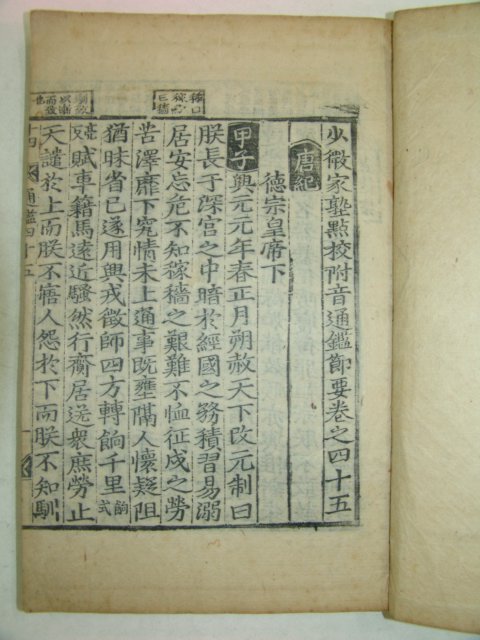 少微家塾點校附音通鑑節要卷之四十五
唐紀
德宗皇帝下
甲子興元元年春正月朔赦天下改元制曰
朕長于深宮之中暗於經國之務積習易溺
居安忘危不知稼穡之艱難不恤征戍之勞
苦澤靡下究情未上通事旣壅隔人懷疑阻
猶昧省己遂用興戎徵師四方轉餉千里餉式
亮反賦車籍馬遠近騷然行齎居送衆庶勞止
天譴於上而朕不寤人怨於下而朕不知馴
通鑑四十五